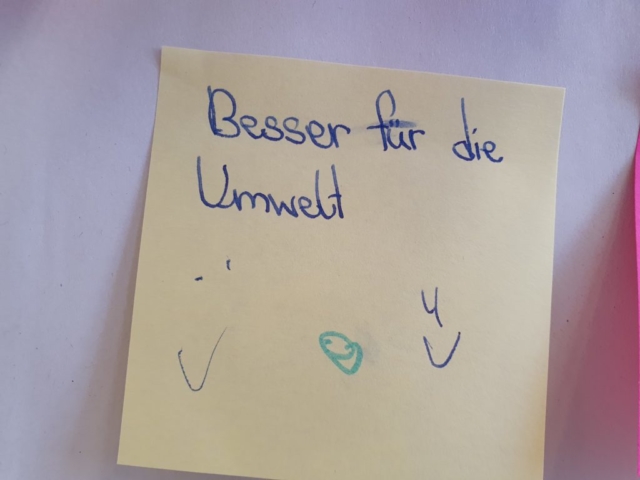 Besser für die
Umwelt